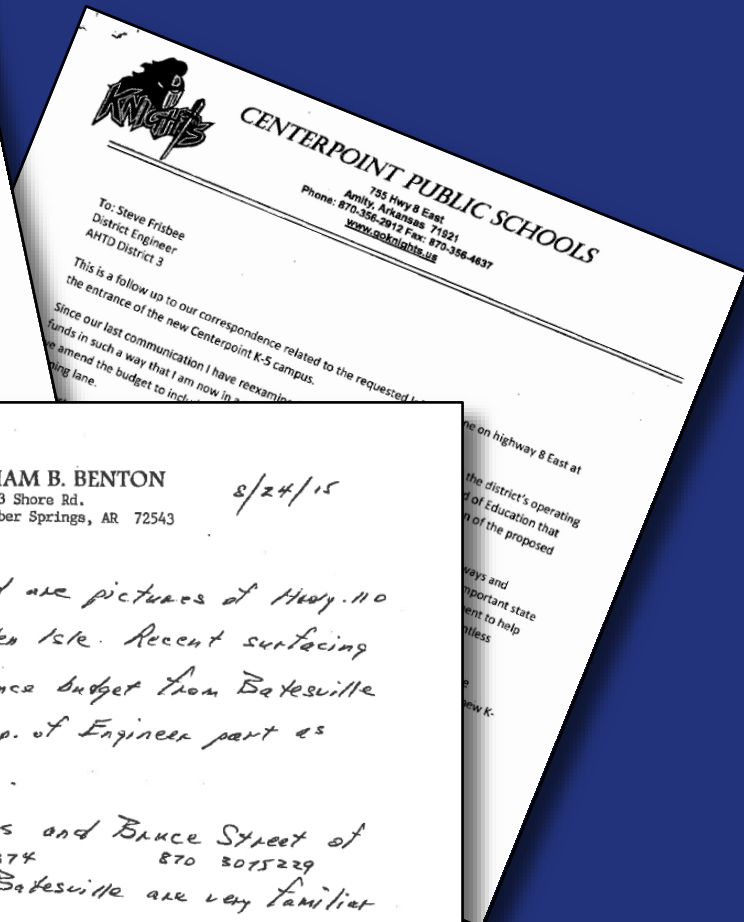 KNIGHTS
CENTERPOINT PUBLIC SCHOOLS
755 Hwy 8 East
Amity, Arkansas 71921
Phone: 870-356-2912 Fax: 870-356-4637
www.goknights.us
To: Steve Frisbee
District Engineer
AHTD District 3
This is a follow up to our correspondence related to the requested ne on highway 8 East at
the entrance of the new Centerpoint K-5 campus.
Since our last communication I have reexamin the district's operating
funds in such a way that I am now in a d of Education that
e amend the budget to inclu n of the proposed
ning lane.
ways and
mportant state
ent to help
ntless
e
ew K-
AM B. BENTON
3 Shore Rd.
ber Springs, AR 72543
8/24/15
d are pictures of Hwy. 110
en Isle. Recent surfacing
nce budget from Batesville
p. of Engineer part as
.
s and Bruce Street of
374 870 3075229
Batesville are very familiar